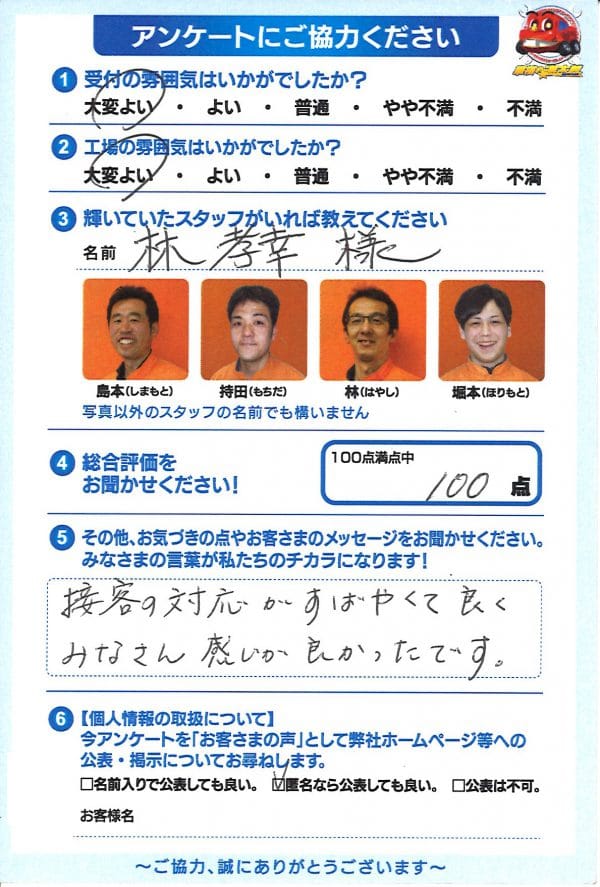 アンケートにご協力ください
1 受付の雰囲気はいかがでしたか?
大変よい ・ よい ・ 普通 ・ やや不満 ・ 不満
2 工場の雰囲気はいかがでしたか?
大変よい ・ よい ・ 普通 ・ やや不満 ・ 不満
3 輝いていたスタッフがいれば教えてください
名前 林 孝幸 様
島本(しまもと) 持田(もちだ) 林(はやし) 堀本(ほりもと)
写真以外のスタッフの名前でも構いません
4 総合評価を
お聞かせください!
100点満点中
100 点
5 その他、お気づきの点やお客さまのメッセージをお聞かせください。
みなさまの言葉が私たちのチカラになります!
接客の対応がすばやくて良く
みなさん感じが良かったです。
6 【個人情報の取扱について】
今アンケートを「お客さまの声」として弊社ホームページ等への
公表・掲示についてお尋ねします。
□名前入りで公表しても良い。 ☑匿名なら公表しても良い。 □公表は不可。
お客様名
〜ご協力、誠にありがとうございます〜